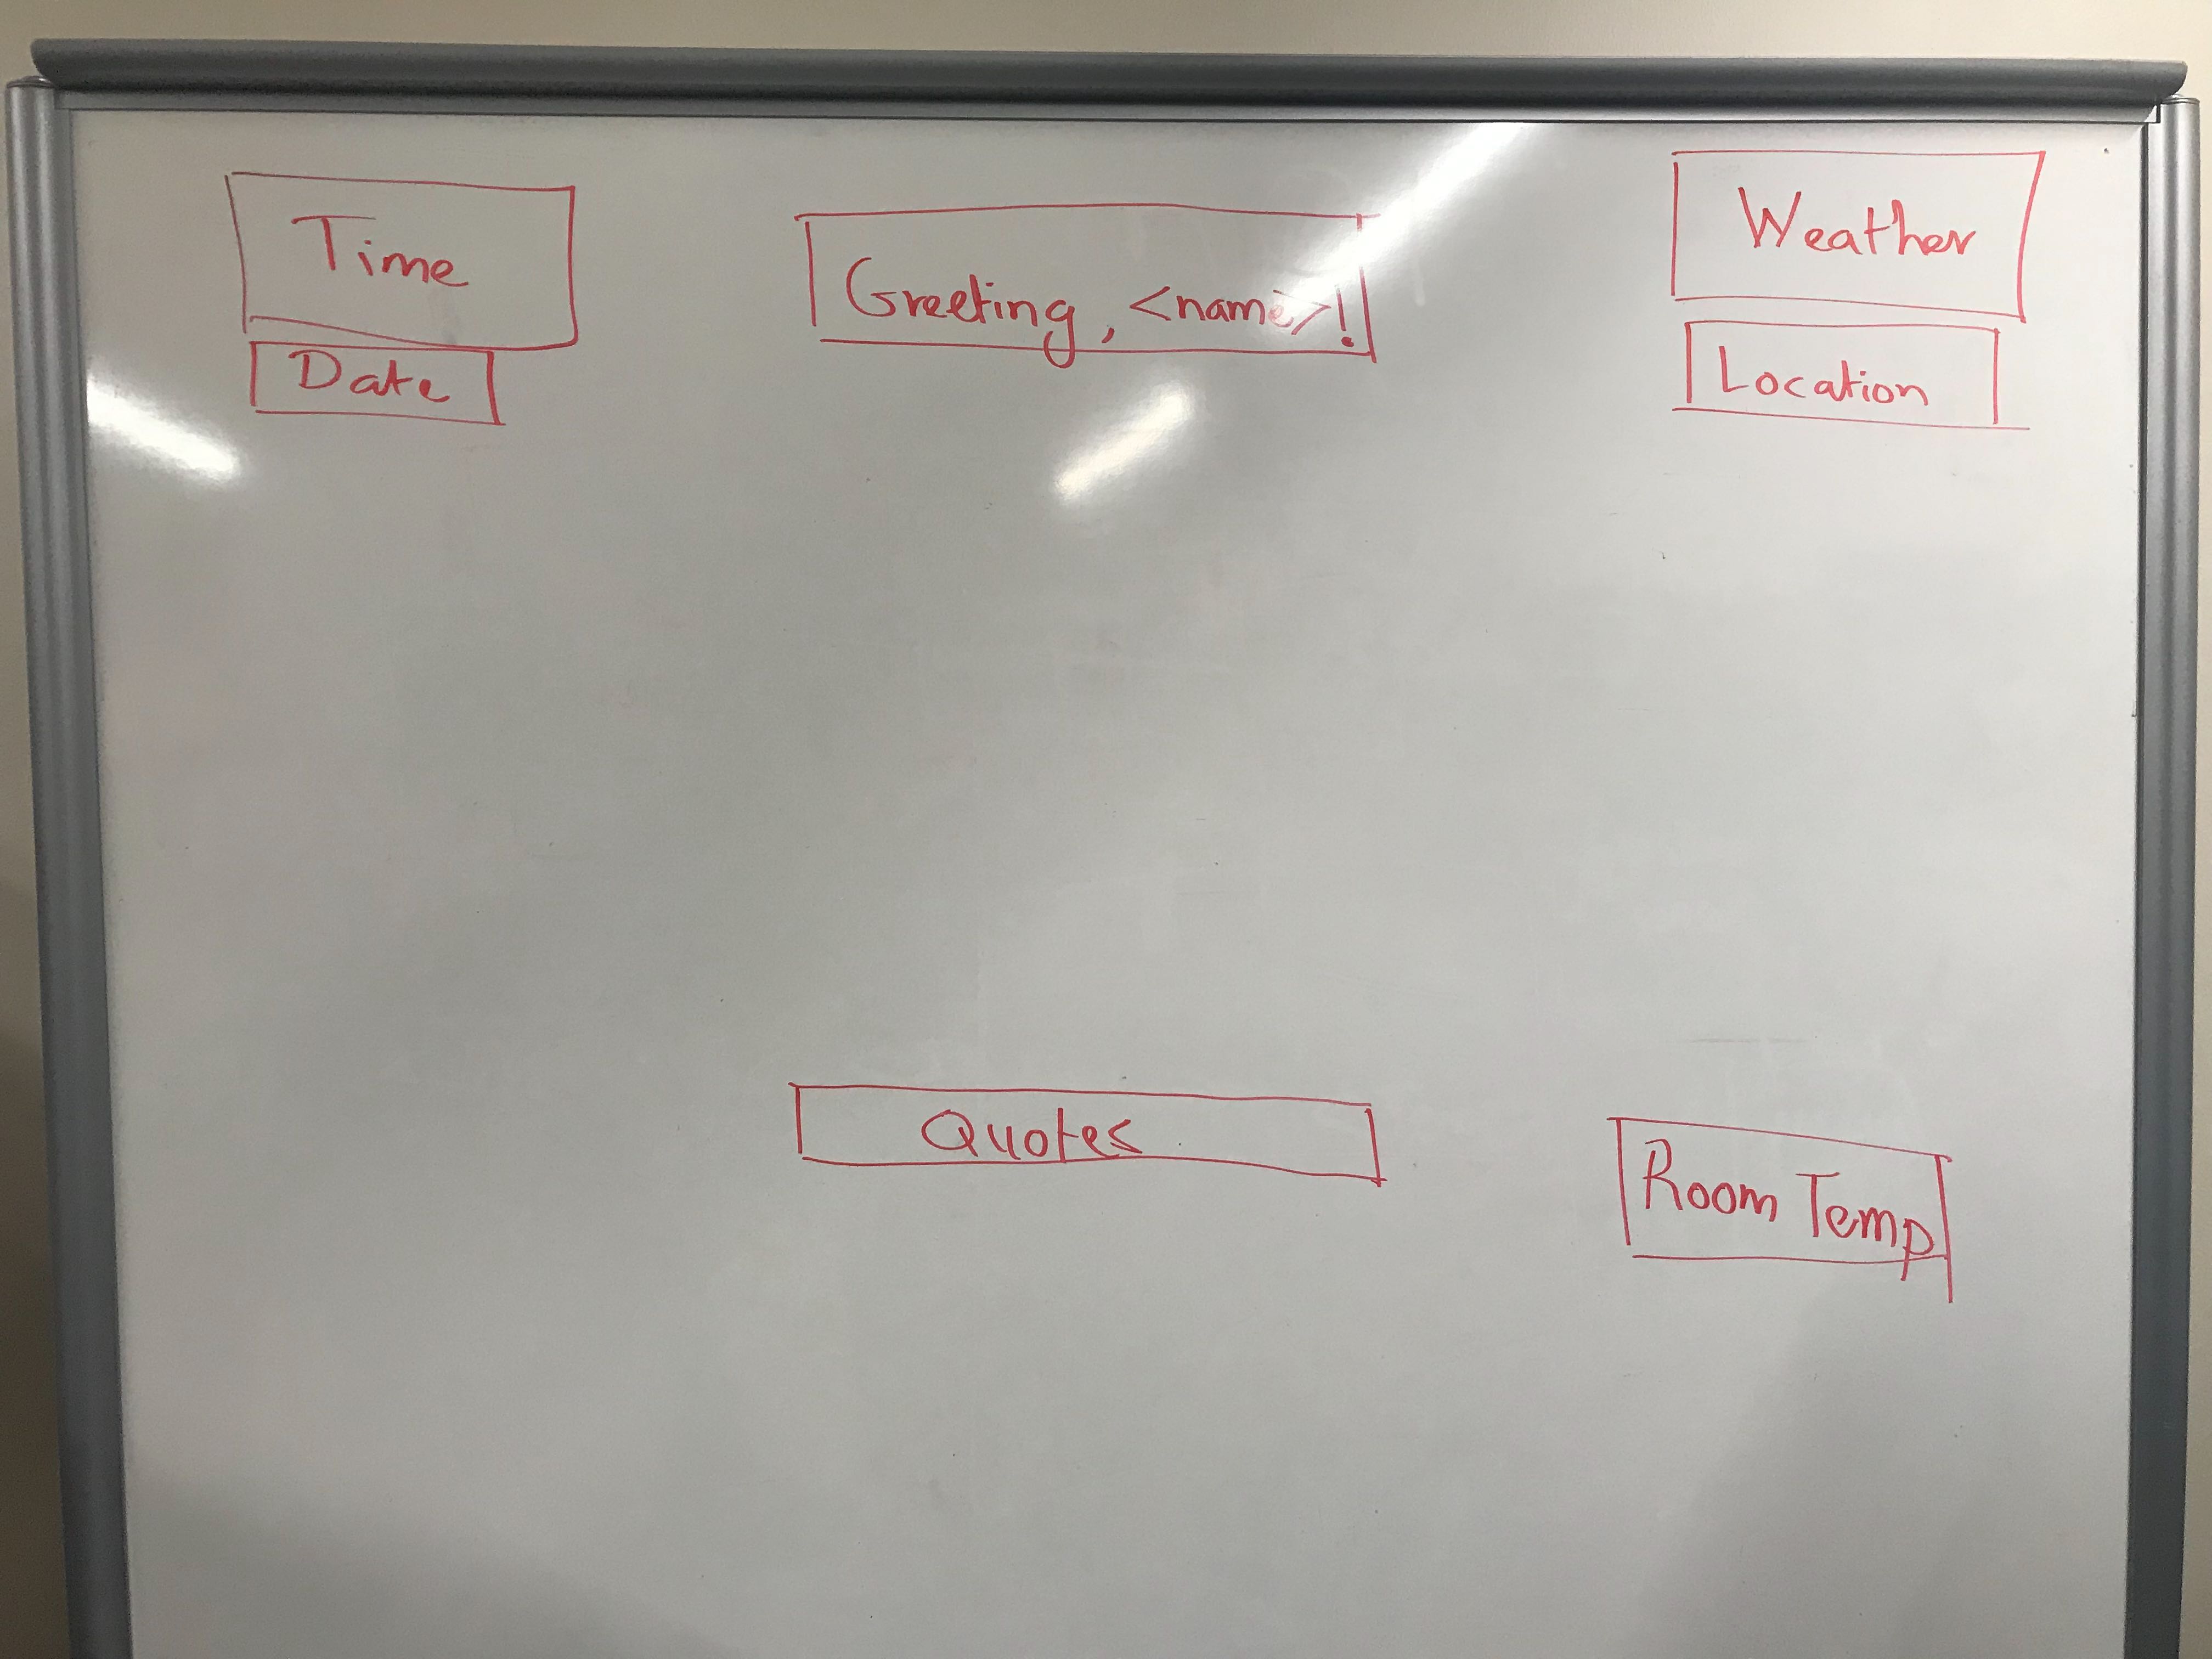 Time
Date
Greeting, <name>!
Weather
Location
Quotes
Room Temp